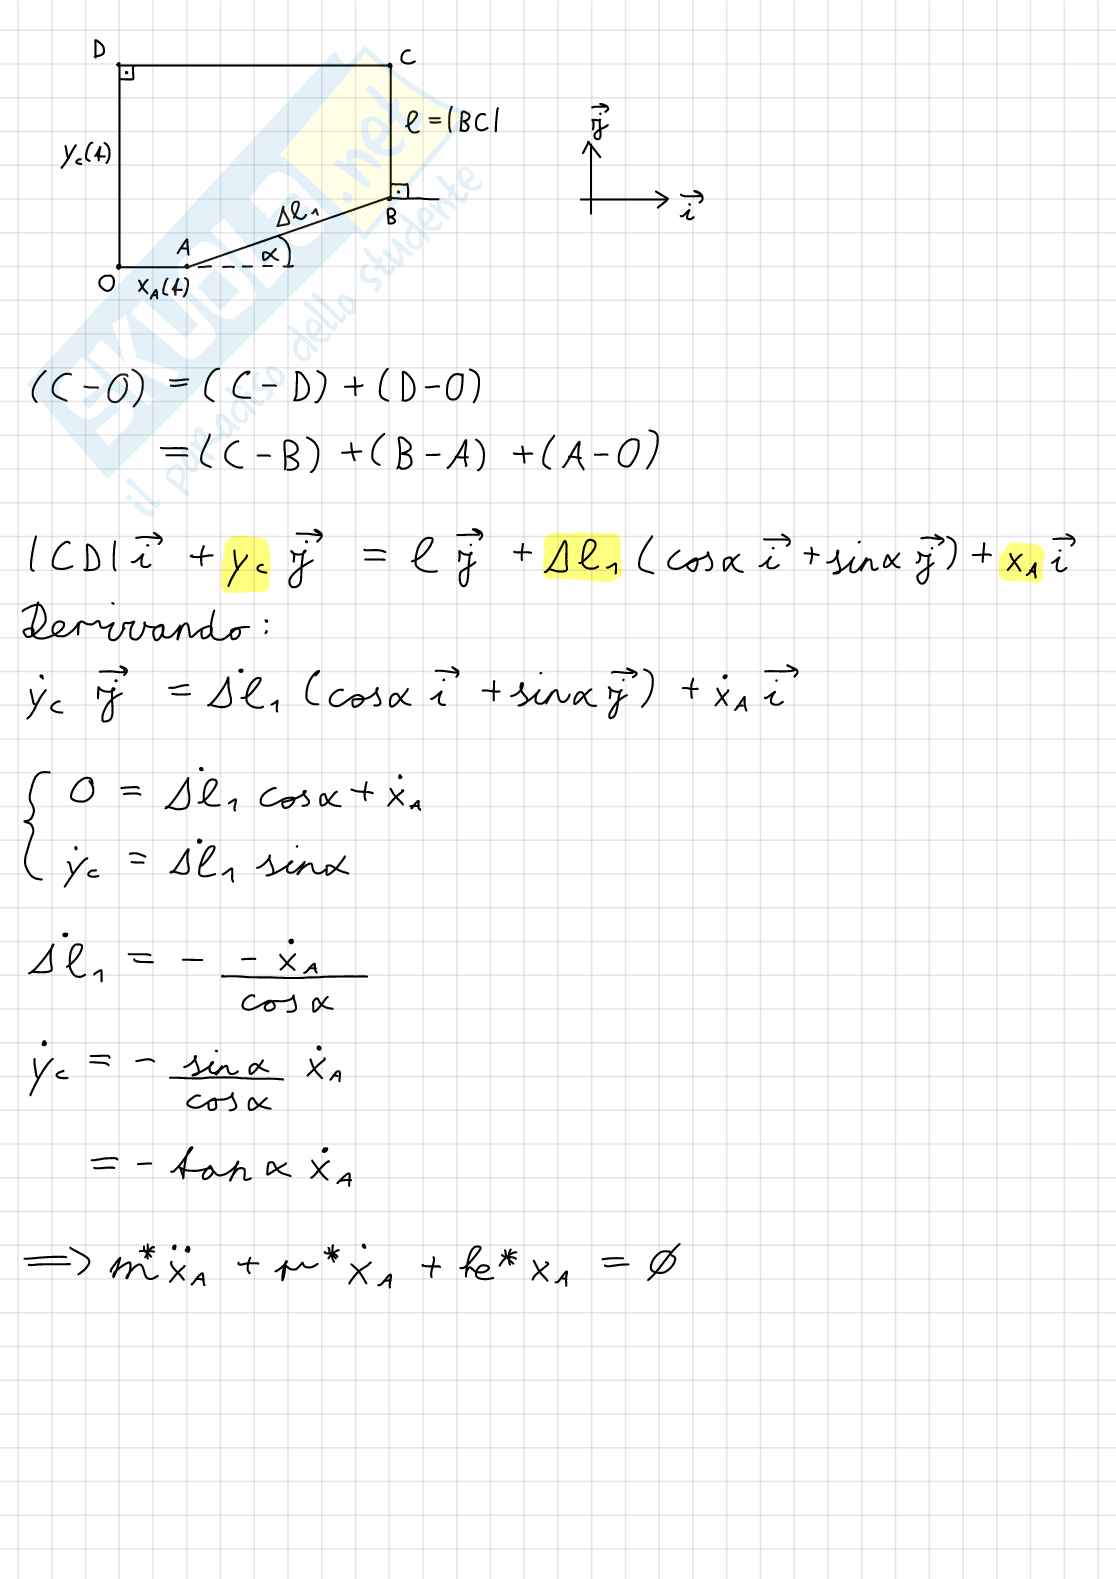 D
C
ℓ = |BC|
y_c(t)
Δℓ₁
B
A
α
O
x_A(t)
j⃗
i⃗
SKUOLA.net
il paradiso dello studente
(C-O) = (C-D) + (D-O)
= (C-B) + (B-A) + (A-O)
|CD| i⃗ + y_c j⃗ = ℓ j⃗ + Δℓ₁ (cosα i⃗ + sinα j⃗) + x_A i⃗
Derivando:
ẏ_c j⃗ = Δℓ̇₁ (cosα i⃗ + sinα j⃗) + ẋ_A i⃗
{ 0 = Δℓ̇₁ cosα + ẋ_A
ẏ_c = Δℓ̇₁ sinα
Δℓ̇₁ = - (- ẋ_A) / cosα
ẏ_c = - (sinα / cosα) ẋ_A
= - tanα ẋ_A
⟹ m* ẍ_A + μ* ẋ_A + ke* x_A = ∅